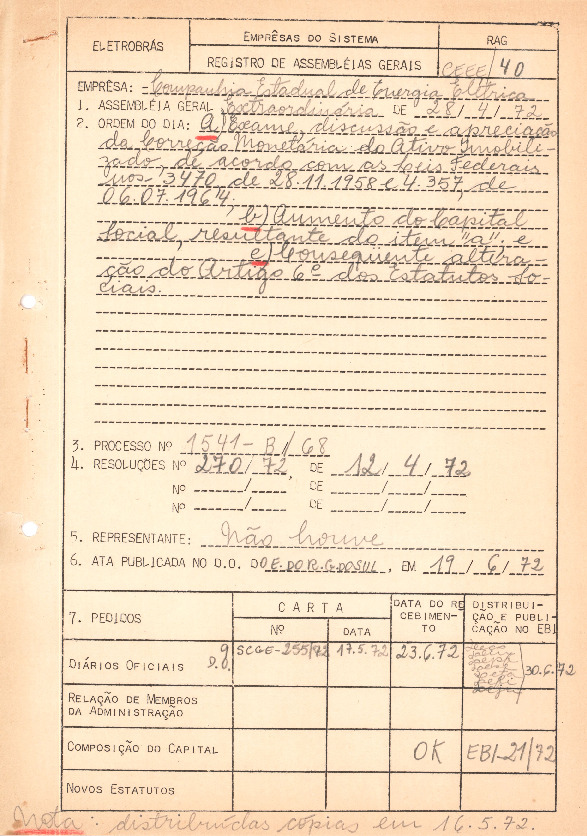 ELETROBRÁS
EMPRÊSAS DO SISTEMA
REGISTRO DE ASSEMBLÉIAS GERAIS
RAG
CEEE/40
EMPRÊSA: Companhia Estadual de Energia Elétrica
1. ASSEMBLÉIA GERAL Extraordinária DE 28/4/72
2. ORDEM DO DIA: a) Exame, discussão e apreciação
da Correção Monetária do Ativo Imobili-
zado, de acordo com as Leis Federais
nos. 3470 de 28.11.1958 e 4.357, de
06.07.1964;
b) Aumento do Capital
Social, resultante do item "a", e
c) Consequente altera-
ção do Artigo 6º dos Estatutos So-
ciais.
3. PROCESSO Nº 1541-B/68
4. RESOLUÇÕES Nº 270/72, DE 12/4/72
Nº ____/____ DE ____/____/____
Nº ____/____ DE ____/____/____
5. REPRESENTANTE: Não houve
6. ATA PUBLICADA NO D.O. DO E. DO R.G. DO SUL, EM 19/6/72
7. PEDIDOS
CARTA
Nº
DATA
DATA DO RE
CEBIMEN-
TO
DISTRIBUI-
ÇÃO E PUBLI-
CAÇÃO NO EBI
DIÁRIOS OFICIAIS 9 D.O. SCGE-255/72 17.5.72 23.6.72 30.6.72
RELAÇÃO DE MEMBROS
DA ADMINISTRAÇÃO
COMPOSIÇÃO DO CAPITAL OK EBI-21/72
NOVOS ESTATUTOS
Nota: distribuídas cópias em 16.5.72.